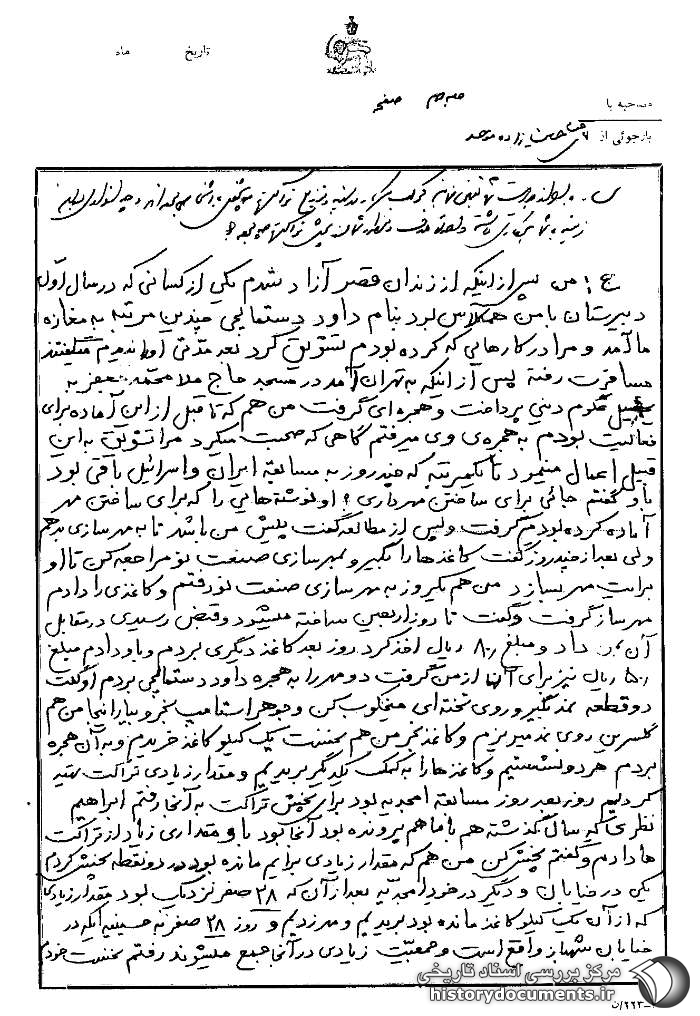 تاریخ ماه
مصاحبه با صفحه
بازجوئی از
ج : من پس از اینکه از زندان قصر آزاد شدم یکی از کسانی که در سال اول
دبیرستان با من همکلاس بود بنام داود دستمالچی چندین مرتبه به مغازه
ما آمد و مرا در کارهایی که کرده بودم تشویق کرد بعد مدتی او را ندیدم میگفتند
مسافرت رفته پس از اینکه به تهران آمد در مسجد حاج ملا محمد جعفر به
علوم دینی پرداخت و حجره ای گرفت من هم که تا قبل از این آماده برای
فعالیت بودم به حجره ی وی میرفتم گاهی که صحبت میکرد مرا تشویق به این
قبیل اعمال مینمود تا یکمرتبه که چند روز به مسابقه ایران و اسرائیل باقی بود
باو گفتم جائی برای ساختن مهر داری ؟ او نوشته هایی را که برای ساختن مهر
آماده کرده بودم گرفت و پس از مطالعه گفت پیش من باشد تا به مهرسازی بدهم
ولی بعد از چند روز گفت کاغذها را بگیر و بمهرسازی صنعت نو مراجعه کن تا او
برایت مهر بسازد من هم یکروز به مهرسازی صنعت نو رفتم و کاغذی را دادم
مهرساز گرفت و گفت تا روز اربعین ساخته میشود و قبض رسیدی در مقابل
آن بمن داد و مبلغ ۸۰ ریال اخذ کرد روز بعد کاغذ دیگری بردم و باو دادم مبلغ
۵۰ ریال نیز برای آن از من گرفت دو مهر را به حجره داود دستمالچی بردم او گفت
دو قطعه نمد بگیر و روی تخته ای میخکوب کن و جوهر استامپ بخر و بیار اینجا من هم
گلسرین روی نمد میریزم و کاغذ بخر من هم بیست یک کیلو کاغذ خریدم و به آن حجره
بردم هر دو نشستیم و کاغذها را به کمک یکدیگر بریدیم و مقدار زیادی تراکت تهیه
کردیم روز بعد روز مسابقه امجدیه بود برای پخش تراکت به آنجا رفتم ابراهیم
نظری که سال گذشته هم با ما هم پرونده بود آنجا بود باو مقداری زیاد از تراکت
ها دادم و گفتم پخش کن من هم که مقدار زیادی برایم مانده بود در دو نقطه پخش کردم
یکی در خیابان و دیگر در خود امجدیه بعد از آن که ۲۸ صفر نزدیک بود مقدار زیادی
که از آن یک کیلو کاغذ مانده بود بریدیم و مهر زدیم و روز ۲۸ صفر به حسینیه ایکه در
خیابان شهباز واقع است و جمعیت زیادی در آنجا جمع میشوند رفتم نخست خودم
مرکز بررسی اسناد تاریخی
historydocuments.ir